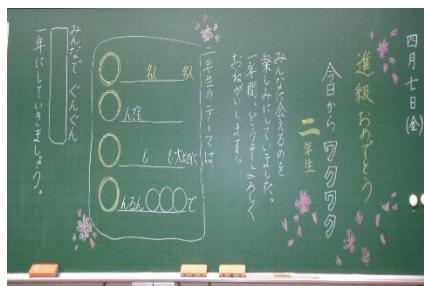 四月七日(金)
進級おめでとう
今日から ワクワク
二年生
みんなに会えるのを
楽しみにしていました。
一年間、どうぞよろしく
おねがいします。
二年生のテーマは、
○ 名 名
○ んな
○ も も大切に
○ んろん○○○で
みんなで ぐんぐん
一年にしていきましょう。